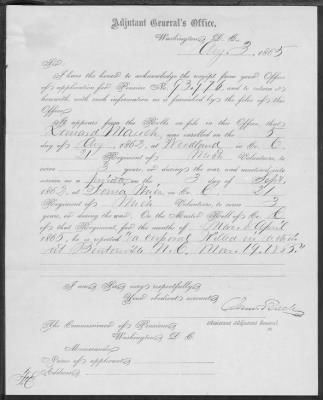 Adjutant General's Office,
Washington, D. C.
Aug 3, 1865
Sir:
I have the honor to acknowledge the receipt from your Office
of application for Pension No. 93.776, and to return it
herewith, with such information as is furnished by the files of this
Office.
It appears from the Rolls on file in this Office, that
Leonard Mauch, was enrolled on the 5
day of Aug, 1862, at Woodland in Co. C
21 Regiment of Mich Volunteers, to
serve 3 years, or during the war, and mustered into
service as a private on the 3 day of Sept,
1862, at Ionia Mich in Co. C 21
Regiment of Mich Volunteers, to serve 3
years, or during the war. On the Muster Roll of Co. C
of that Regiment, for the months of March & April
1865, he is reported "a corporal Killed in action
at Bentonville N. C. Mar. 19. 1865."
I am, Sir, very respectfully,
Your obedient servant,
Assistant Adjutant General.
The Commissioner of Pensions,
Washington, D. C.
Memoranda:
Name of applicant
Address